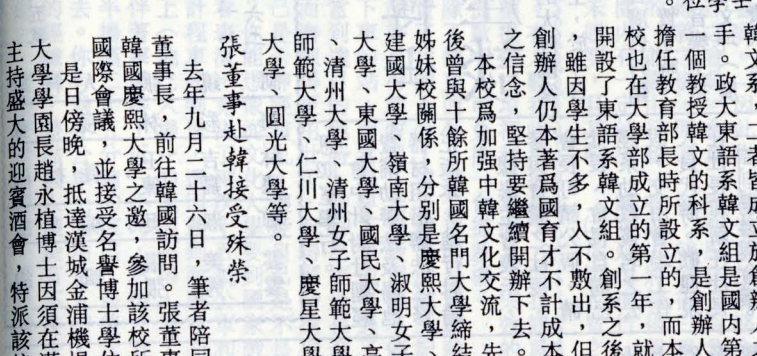 位學士
韓文系，二者皆成立於創辦人
手。政大東語系韓文組是國內第
一個教授韓文的科系，是創辦人
擔任教育部長時所設立的，而本
校也在大學部成立的第一年，就
開設了東語系韓文組。創系之後
，雖因學生不多，人不敷出，但
創辦人仍本著爲國育才不計成本
之信念，堅持要繼續開辦下去。
本校爲加强中韓文化交流，先
後曾與十餘所韓國名門大學締結
姊妹校關係，分別是慶熙大學、
建國大學、嶺南大學、淑明女子
大學、東國大學、國民大學、高
、清州大學、清州女子師範大學
師範大學、仁川大學、慶星大學
大學、圓光大學等。
張董事赴韓接受殊榮
去年九月二十六日，筆者陪同
董事長，前往韓國訪問。張董事
韓國慶熙大學之邀，參加該校所
國際會議，並接受名譽博士學位
是日傍晚，抵達漢城金浦機場
大學學園長趙永植博士因須在漢
主持盛大的迎賓酒會，特派該校